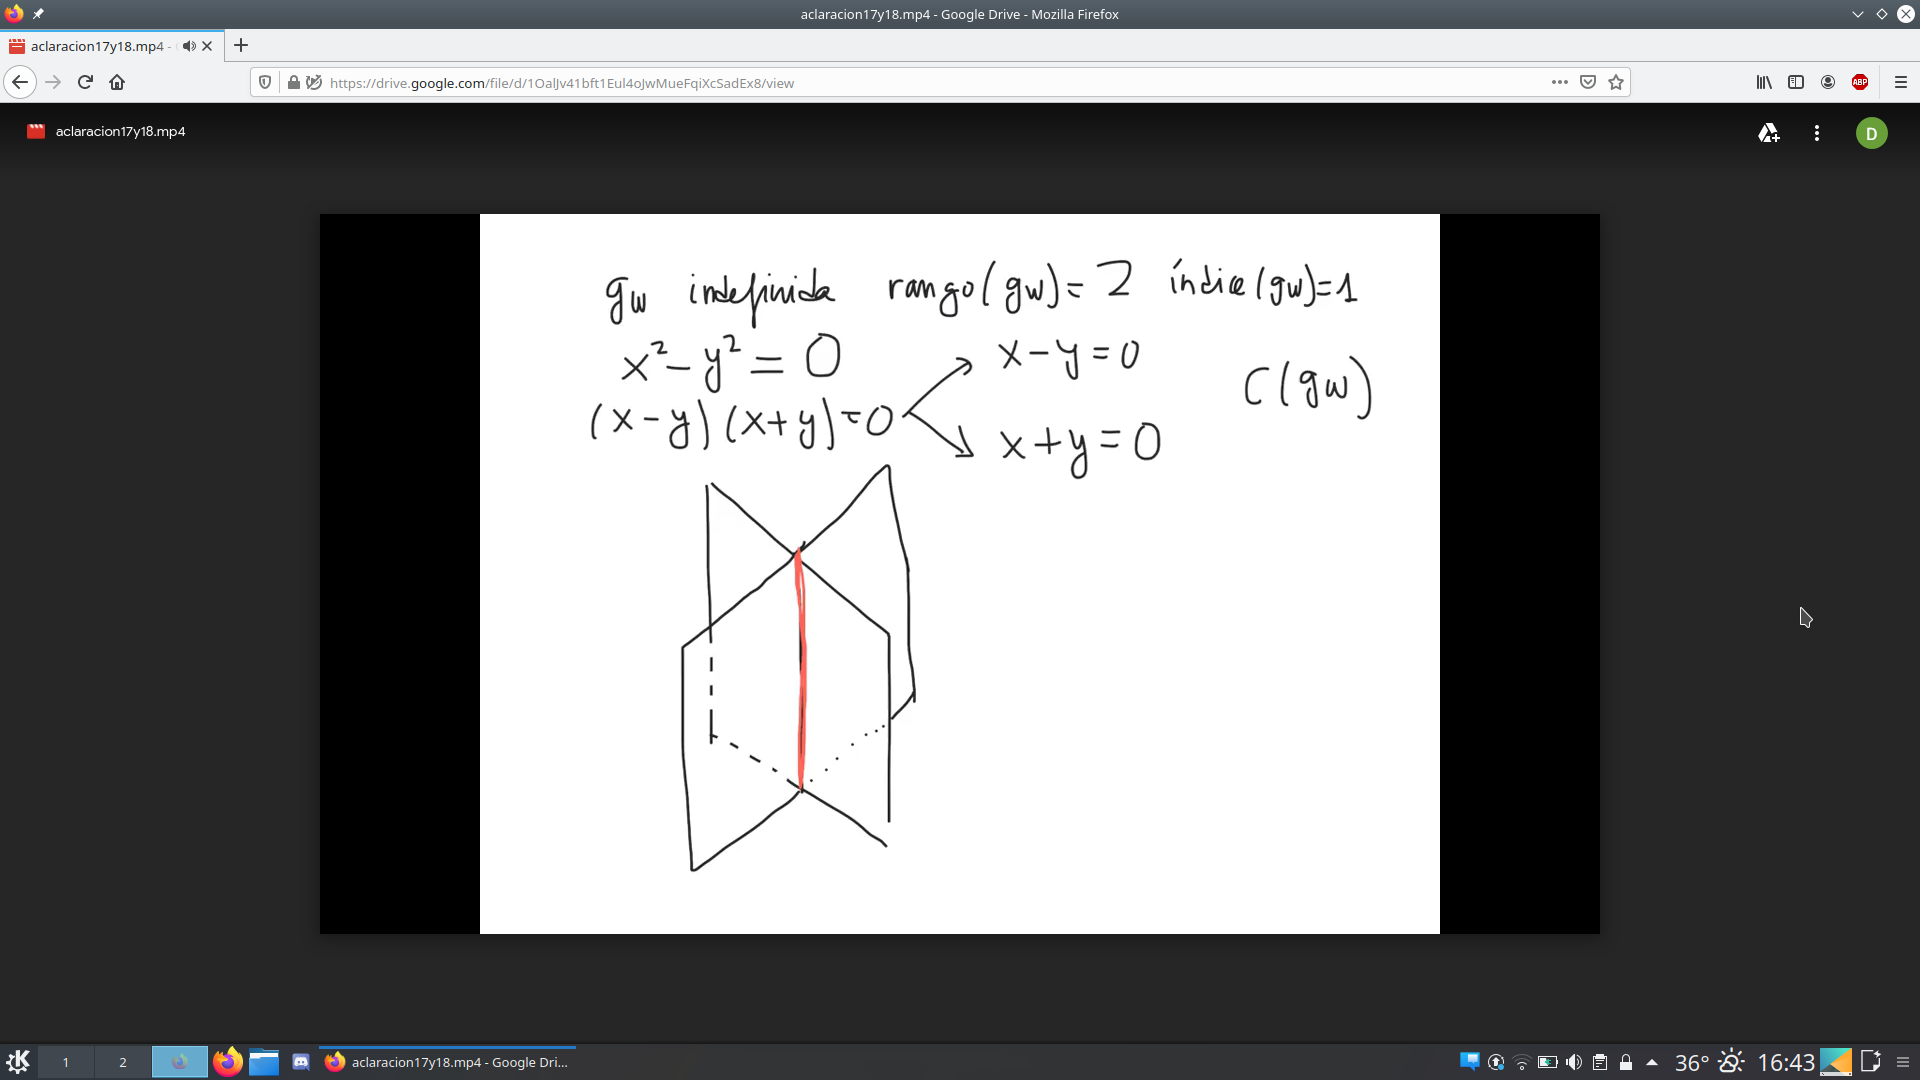 aclaracion17y18.mp4 - Google Drive - Mozilla Firefox
aclaracion17y18.mp4 -
https://drive.google.com/file/d/1OalJv41bft1Eul4oJwMueFqiXcSadEx8/view
ABP
aclaracion17y18.mp4
D
gw indefinida rango(gw)=2 índice(gw)=1
x²-y²=0
x-y=0
C(gw)
(x-y)(x+y)=0
x+y=0
1
2
aclaracion17y18.mp4 - Google Dri...
36°
16:43